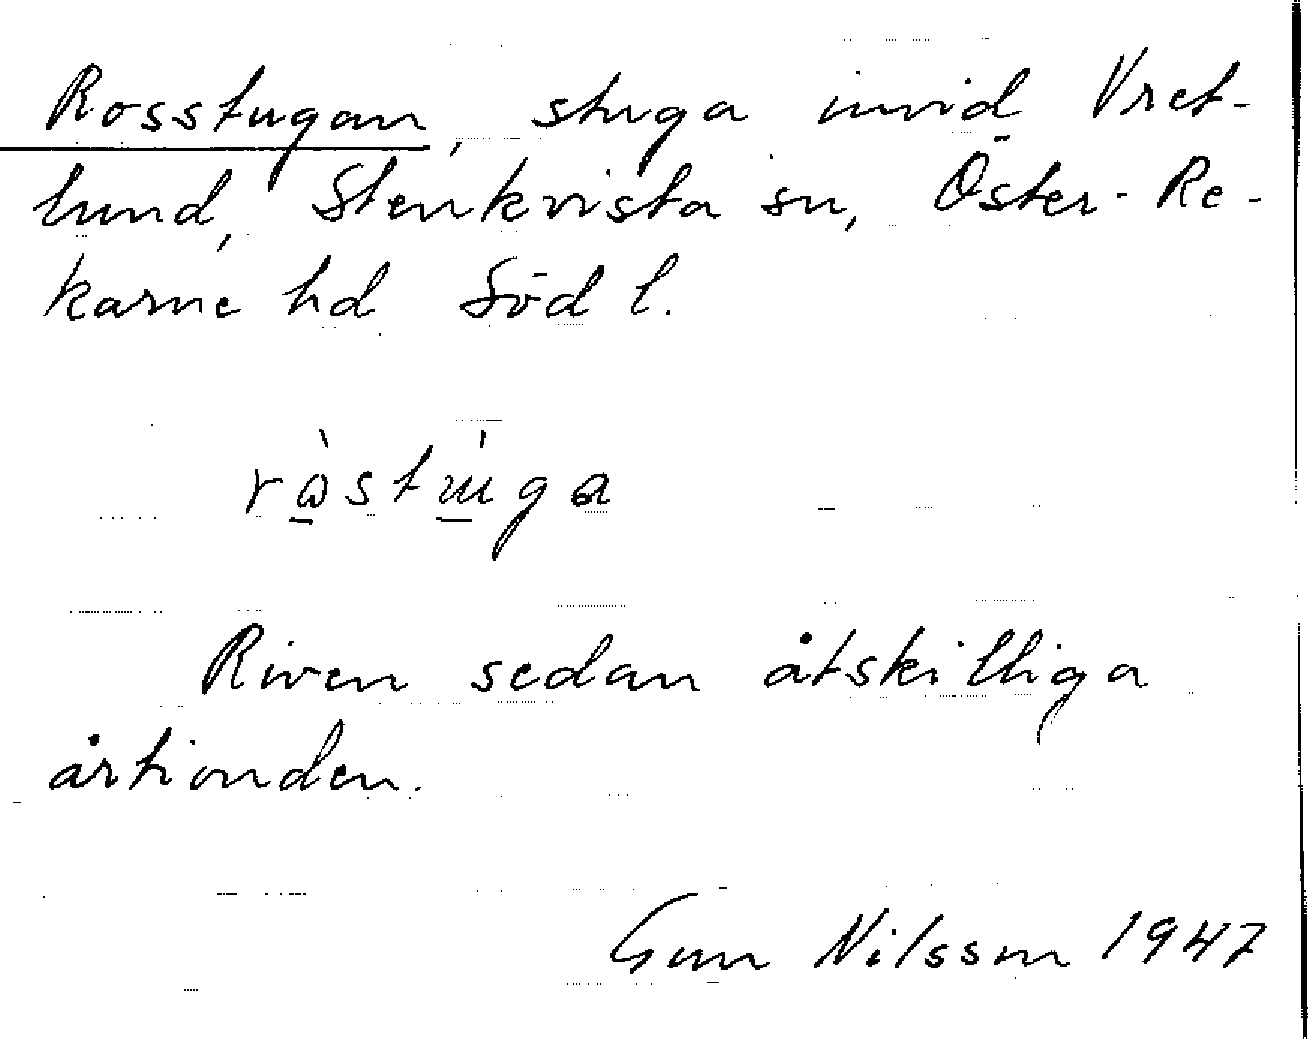 Rosstugan, stuga invid Vret-
lund, Stenkvista sn, Öster-Re-
karne hd Söd l.
Riven sedan åtskilliga
årtionden.
Gun Nilsson 1947